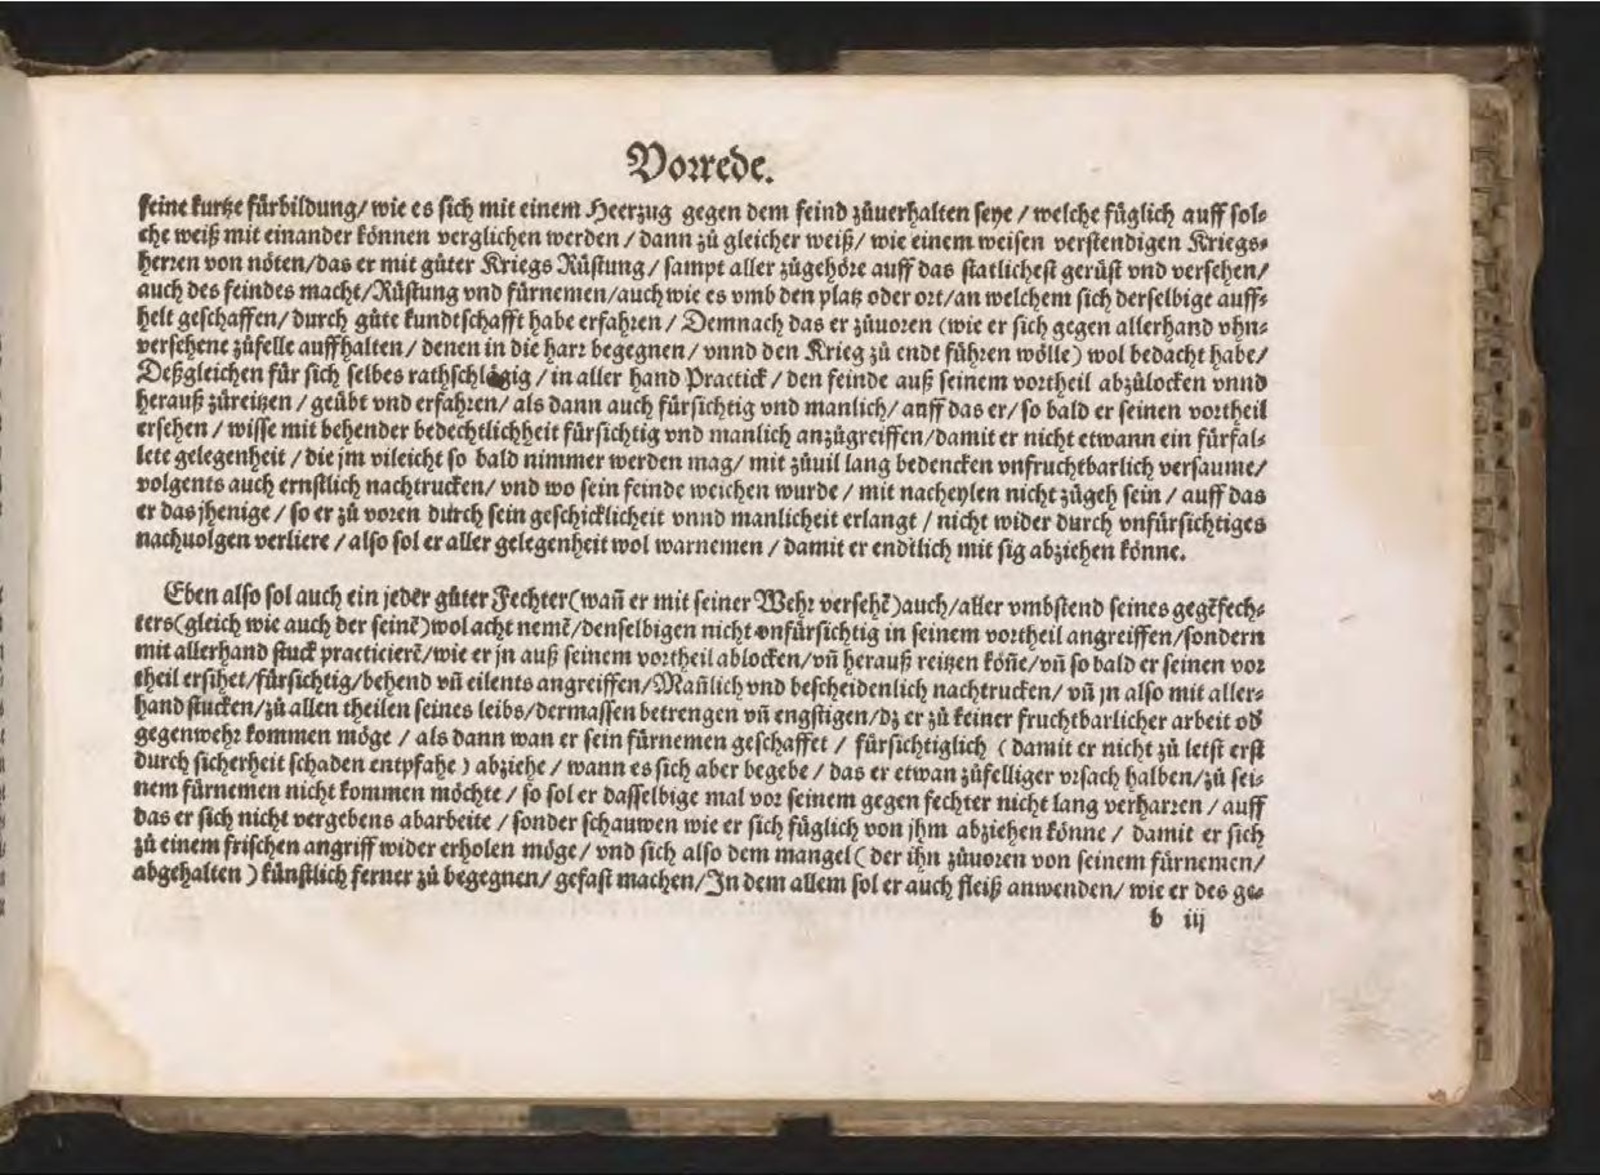 Vorrede.
seine kurtze fürbildung/ wie es sich mit einem Heerzug gegen dem feind zůuerhalten seye / welche füglich auff sol-
che weiß mit einander können verglichen werden / dann zů gleicher weiß/ wie einem weisen verstendigen Kriegs-
herren von nöten/das er mit gůter Kriegs Rüstung/ sampt aller zůgehöre auff das statlichest gerüst vnd versehen/
auch des feindes macht/Rüstung vnd fürnemen/auch wie es vmb den platz oder ort/an welchem sich derselbige auff-
helt geschaffen/ durch gůte kundtschafft habe erfahren / Demnach das er zůuoren (wie er sich gegen allerhand vhn-
versehene zůfelle auffhalten/ denen in die harr begegnen/ vnnd den Krieg zů endt führen wölle) wol bedacht habe/
Deßgleichen für sich selbes rathschlägig / in aller hand Practick / den feinde auß seinem vortheil abzůlocken vnnd
herauß zůreitzen / geübt vnd erfahren/ als dann auch fürsichtig vnd manlich/ auff das er/ so bald er seinen vortheil
ersehen / wisse mit behender bedechtlichheit fürsichtig vnd manlich anzůgreiffen/damit er nicht etwann ein fürfal-
lete gelegenheit / die jm vileicht so bald nimmer werden mag/ mit zůuil lang bedencken vnfruchtbarlich versaume/
volgents auch ernstlich nachtrucken/ vnd wo sein feinde weichen wurde / mit nacheylen nicht zůgeh sein / auff das
er das jhenige / so er zů voren durch sein geschicklicheit vnnd manlicheit erlangt / nicht wider durch vnfürsichtiges
nachuolgen verliere / also sol er aller gelegenheit wol warnemen / damit er endtlich mit sig abziehen könne.
Eben also sol auch ein jeder gůter Fechter(wañ er mit seiner Wehr versehẽ)auch/aller vmbstend seines gegẽfech-
ters(gleich wie auch der seinẽ)wol acht nemẽ/denselbigen nicht vnfürsichtig in seinem vortheil angreiffen/sondern
mit allerhand stuck practicierẽ/wie er jn auß seinem vortheil ablocken/vñ herauß reitzen köñe/vñ so bald er seinen vor
theil ersihet/fürsichtig/behend vñ eilents angreiffen/Mañlich vnd bescheidenlich nachtrucken/ vñ jn also mit aller-
hand stucken/zů allen theilen seines leibs/dermassen betrengen vñ engstigen/dz er zů keiner fruchtbarlicher arbeit od̕
gegenwehr kommen möge / als dann wan er sein fürnemen geschaffet / fürsichtiglich ( damit er nicht zů letst erst
durch sicherheit schaden entpfahe ) abziehe / wann es sich aber begebe / das er etwan zůfelliger vrsach halben/zů sei-
nem fürnemen nicht kommen möchte / so sol er dasselbige mal vor seinem gegen fechter nicht lang verharren / auff
das er sich nicht vergebens abarbeite / sonder schauwen wie er sich füglich von jhm abziehen könne / damit er sich
zů einem frischen angriff wider erholen möge/ vnd sich also dem mangel ( der ihn zůuoren von seinem fürnemen/
abgehalten ) künstlich ferner zů begegnen/ gefast machen/In dem allem sol er auch fleiß anwenden/ wie er des ge-
b iij